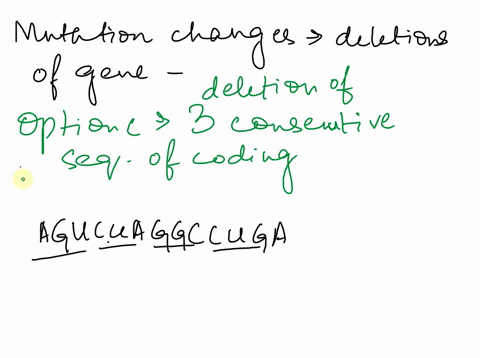 Mutation changes → deletions
of gene - deletion of
option c → 3 consecutive
seq. of coding
AGUCUAGGCCUGA